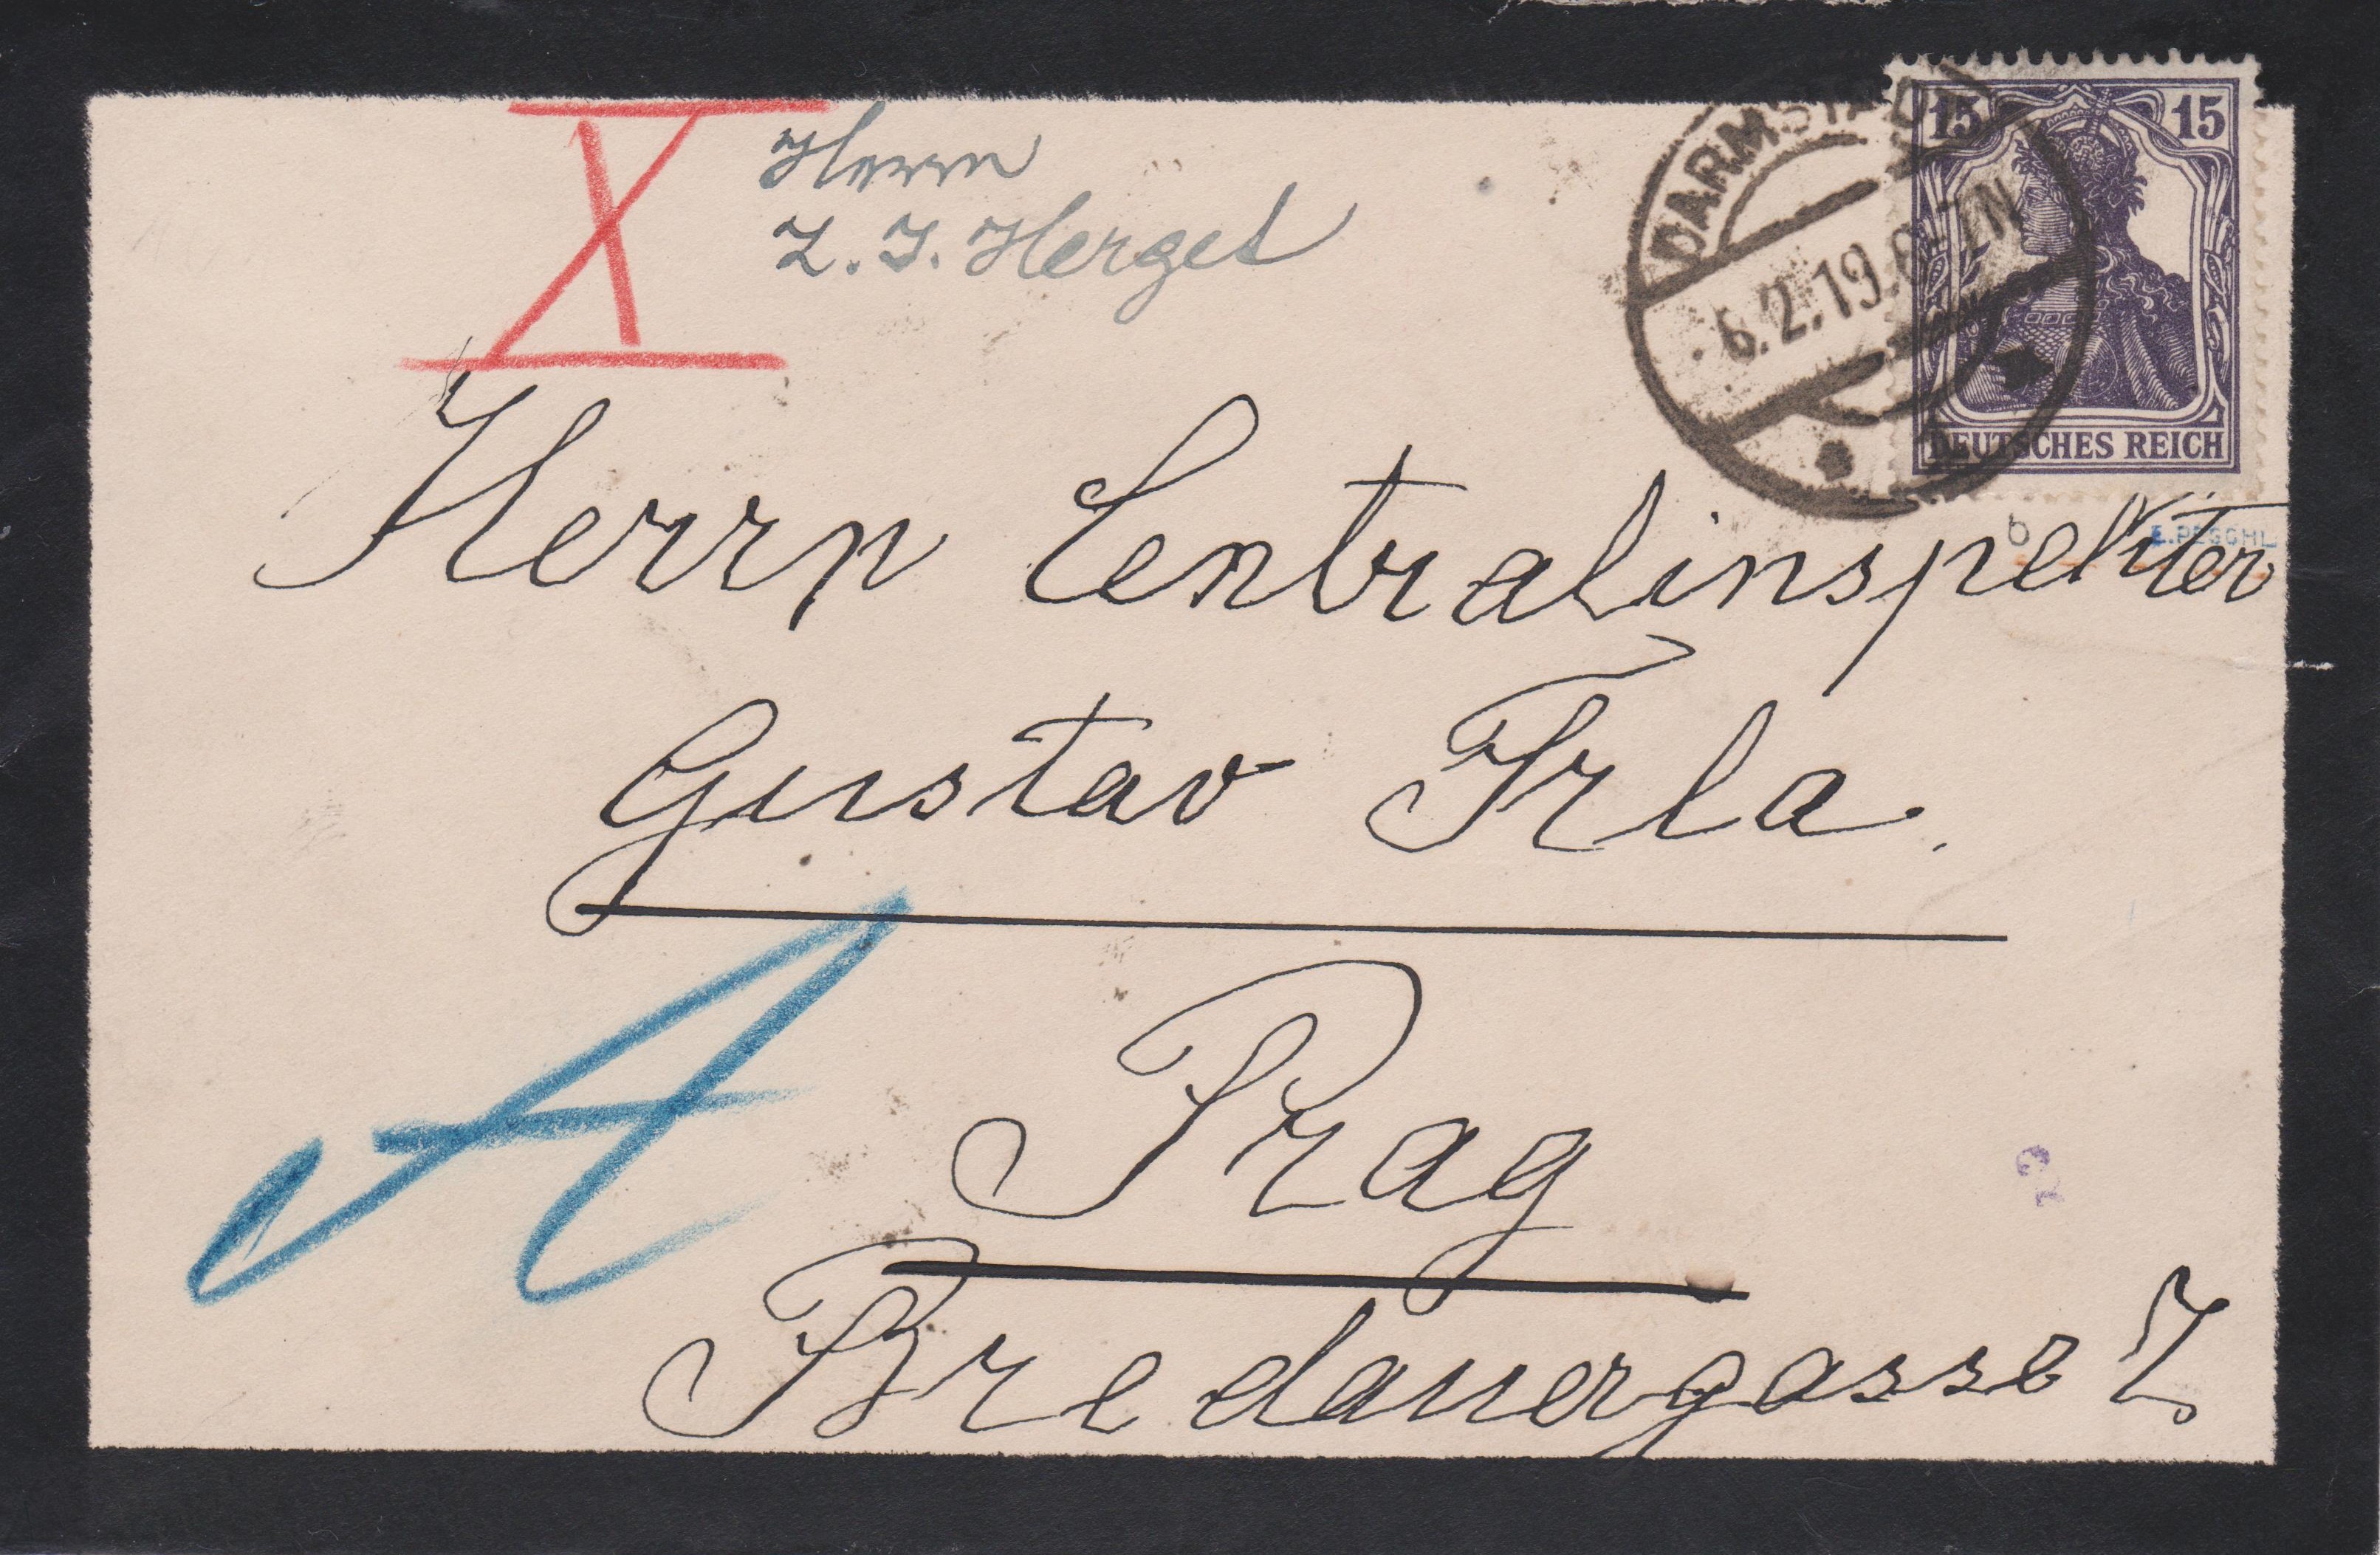 X
Herrn
Z. J. Herget
DARMSTADT
6.2.19.6-7N
15 15
DEUTSCHES REICH
b
E.PESCHL
Herrn Centralinspektor
Gustav Frla.
A
Prag
Bredauergasse 7